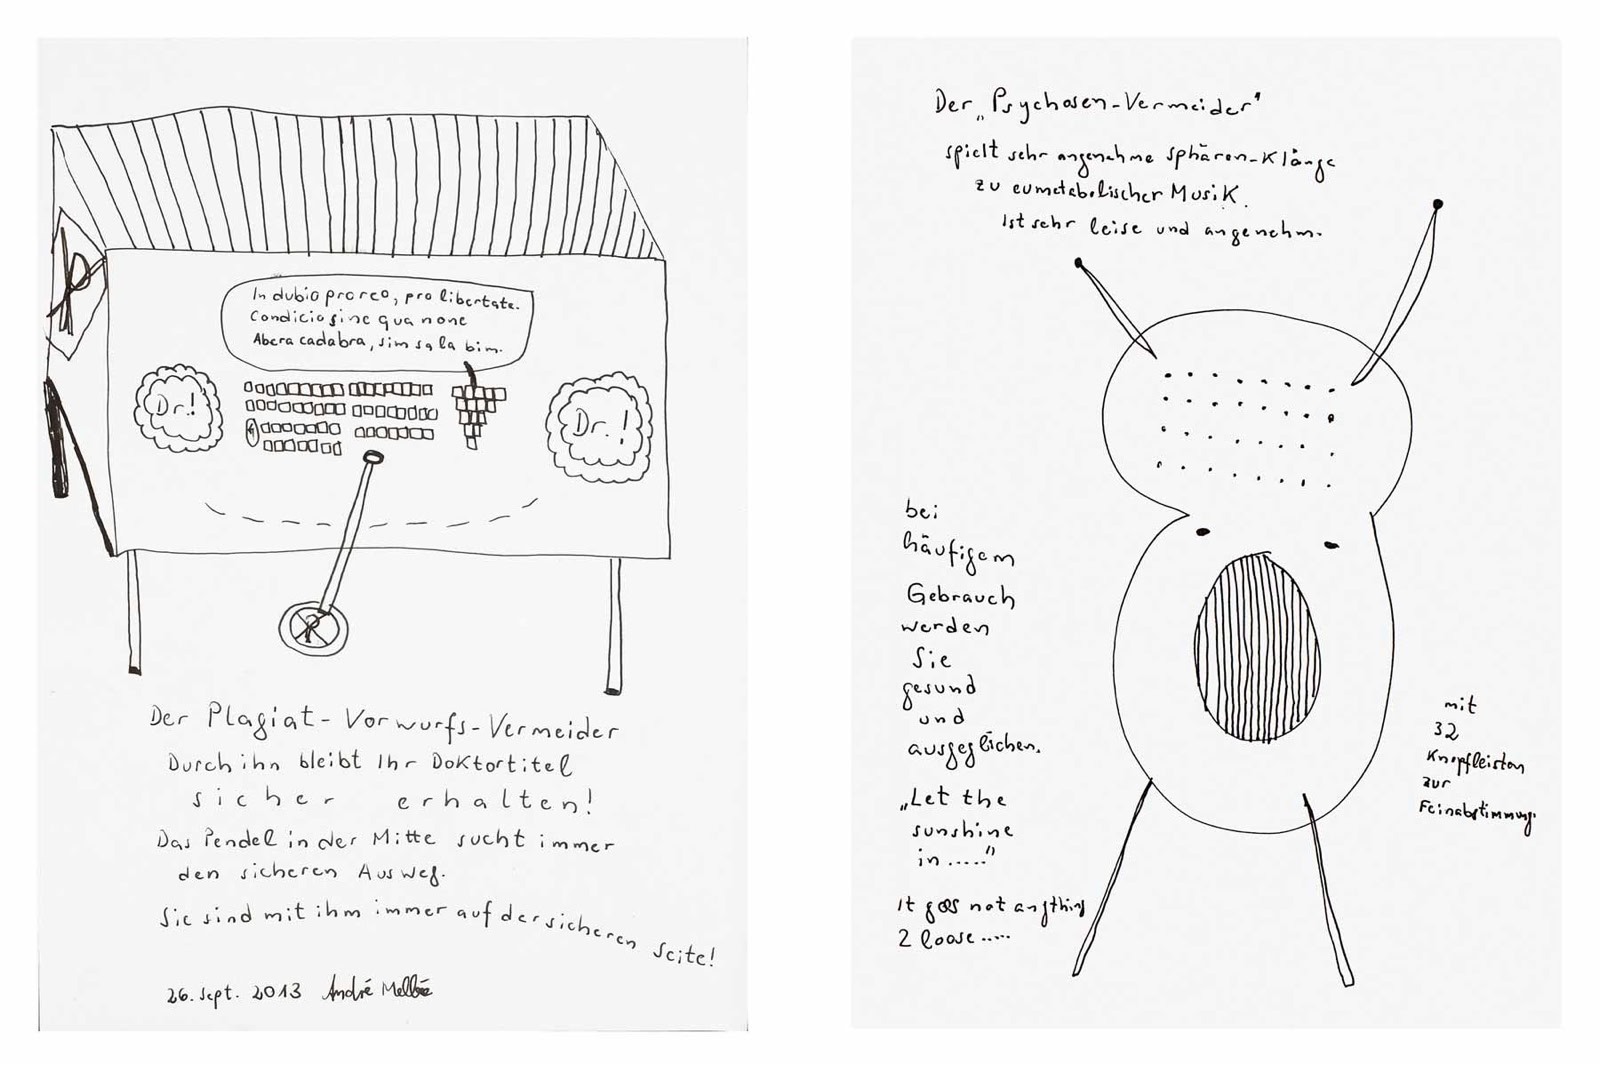 In dubio pro reo, pro libertate.
Condicio sine qua none
Abera cadabra, sim sa la bim.
Dr.!
Dr.!
R
R
Der Plagiat-Vorwurfs-Vermeider
Durch ihn bleibt Ihr Doktortitel
sicher erhalten!
Das Pendel in der Mitte sucht immer
den sicheren Ausweg.
Sie sind mit ihm immer auf der sicheren Seite!
26. Sept. 2013 André
Der „Psychosen-Vermeider"
spielt sehr angenehme Sphären-Klänge
zu eumetabolischer Musik.
Ist sehr leise und angenehm.
bei
häufigem
Gebrauch
werden
Sie
gesund
und
ausgeglichen.
„Let the
sunshine
in ....."
It goes not anything
2 loose .....
mit
32
Knopfleisten
zur
Feinabstimmung.